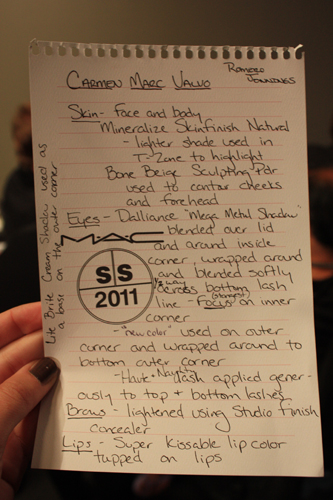 Romero
Jennings
Carmen Marc Valvo
Skin- Face and body
Mineralize Skinfinish Natural
- lighter shade used in
T-Zone to highlight
Bone Beige Sculpting Pdr
used to contor cheeks
and forehead
Eyes- Dalliance "Mega Metal Shadow"
blended over lid
and around inside
corner, wrapped around
and blended softly
1/2 way
across bottom lash
(strongest)
line - Focus on inner
corner
MAC
S S
2011
- "new color" used on outer
corner and wrapped around to
bottom outer corner
- Haute + Naughty lash applied gener-
ously to top + bottom lashes
Brows- lightened using Studio Finish
concealer
Lips- Super Kissable lip color
tapped on lips
Lite Brite Cream Shadow used as
a base on the outer corner